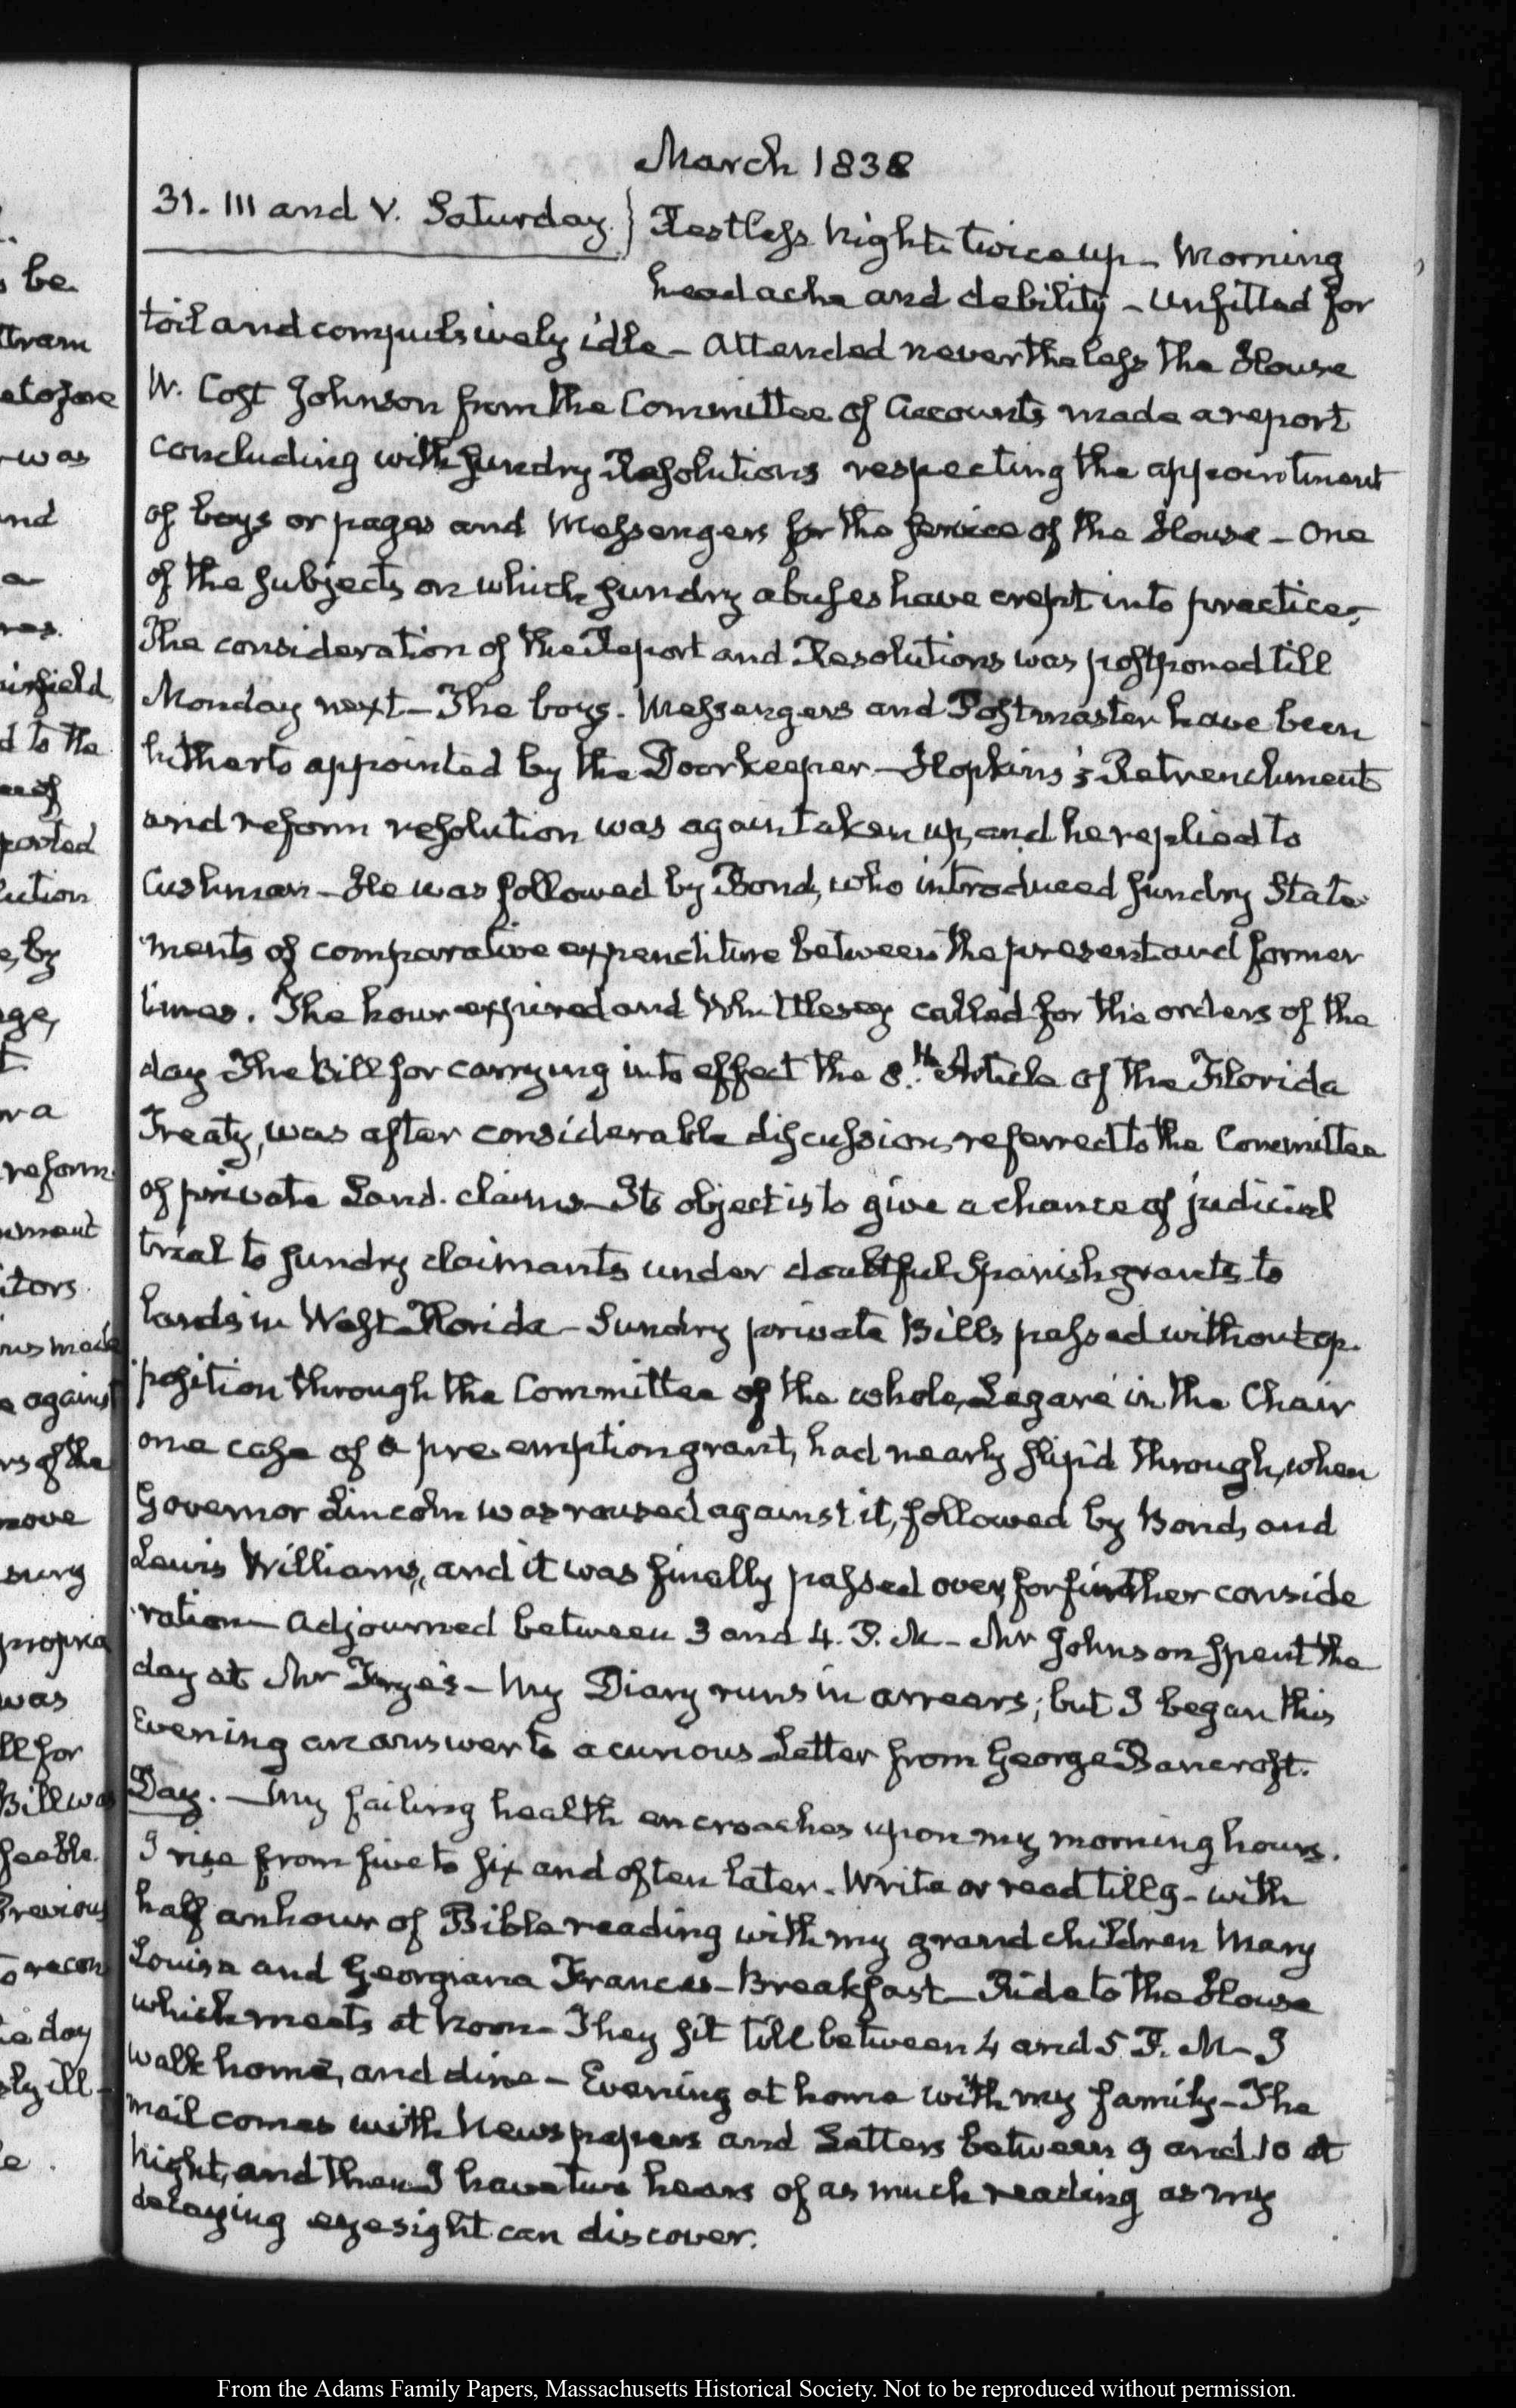 March 1838
31. III and V. Saturday. } Restless Night. twice up – Morning
headache and debility – Unfitted for
toil and compulsively idle – Attended nevertheless the House
W. Cost Johnson from the Committee of Accounts made a report
concluding with sundry Resolutions respecting the appointment
of boys or pages and Messengers for the service of the House – One
of the subjects on which sundry abuses have crept into practice,
The consideration of the Report and Resolutions was postponed till
Monday next – The boys. Messengers and Postmaster have been
hitherto appointed by the Doorkeeper – Hopkins's Retrenchment
and reform resolution was again taken up, and he replied to
Cushman – He was followed by Bond, who introduced sundry State-
ments of comparative expenditure between the present and former
times. The hour expired and Whittlesey called for the orders of the
day The Bill for carrying into effect the 8.th Article of the Florida
Treaty, was after considerable discussion, referred to the Committee
of private Land. claims – Its object is to give a chance of judicial
trial to sundry claimants under doubtful Spanish grants to
lands in West-Florida – Sundry private Bills passed without op-
position through the Committee of the whole, Legaré in the Chair
one case of a pre-emption grant, had nearly slip'd through, when
Governor Lincoln was roused against it, followed by Bond, and
Lewis Williams, and it was finally passed over, for further conside
ration – Adjourned between 3 and 4. P. M – Mr Johnson spent the
day at Mr Frye's – My Diary runs in arrears; but I began this
Evening an answer to a curious Letter from George Bancroft.
Day. – My failing health encroaches upon my morning hours.
I rise from five to six and often later – Write or read till 9 – with
half an hour of Bible reading with my grand children Mary
Louisa and Georgiana Frances – Breakfast – Ride to the House
which meets at Noon – They sit till between 4 and 5 P. M – I
walk home, and dine – Evening at home with my family – The
mail comes with Newspapers and Letters between 9 and 10 at
Night, and then I have two hours of as much reading as my
decaying eyesight can discover.
From the Adams Family Papers, Massachusetts Historical Society. Not to be reproduced without permission.